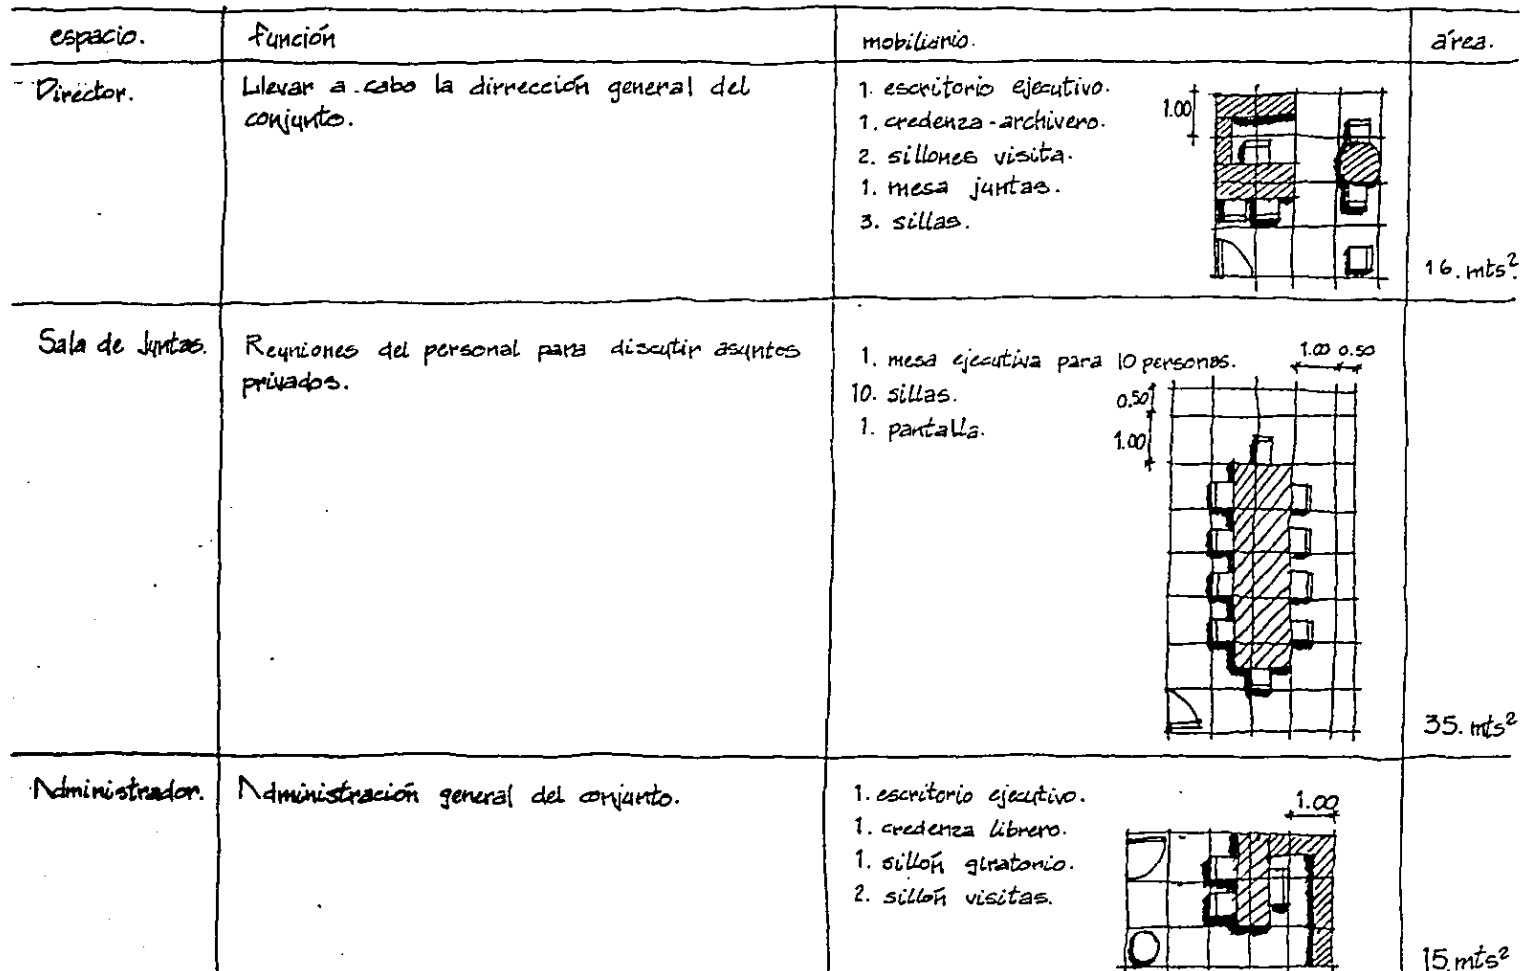 espacio. función mobiliario. área.
Director.
Llevar a cabo la dirrección general del
conjunto.
1. escritorio ejecutivo.
1. credenza-archivero.
2. sillones visita.
1. mesa juntas.
3. sillas.
1.00
16. mts²
Sala de Juntas.
Reuniones del personal para discutir asuntos
privados.
1. mesa ejecutiva para 10 personas.
10. sillas.
1. pantalla.
1.00 0.50
0.50
1.00
35. mts²
Administrador.
Administración general del conjunto.
1. escritorio ejecutivo.
1. credenza librero.
1. sillón giratorio.
2. sillón visitas.
1.00
15. mts²